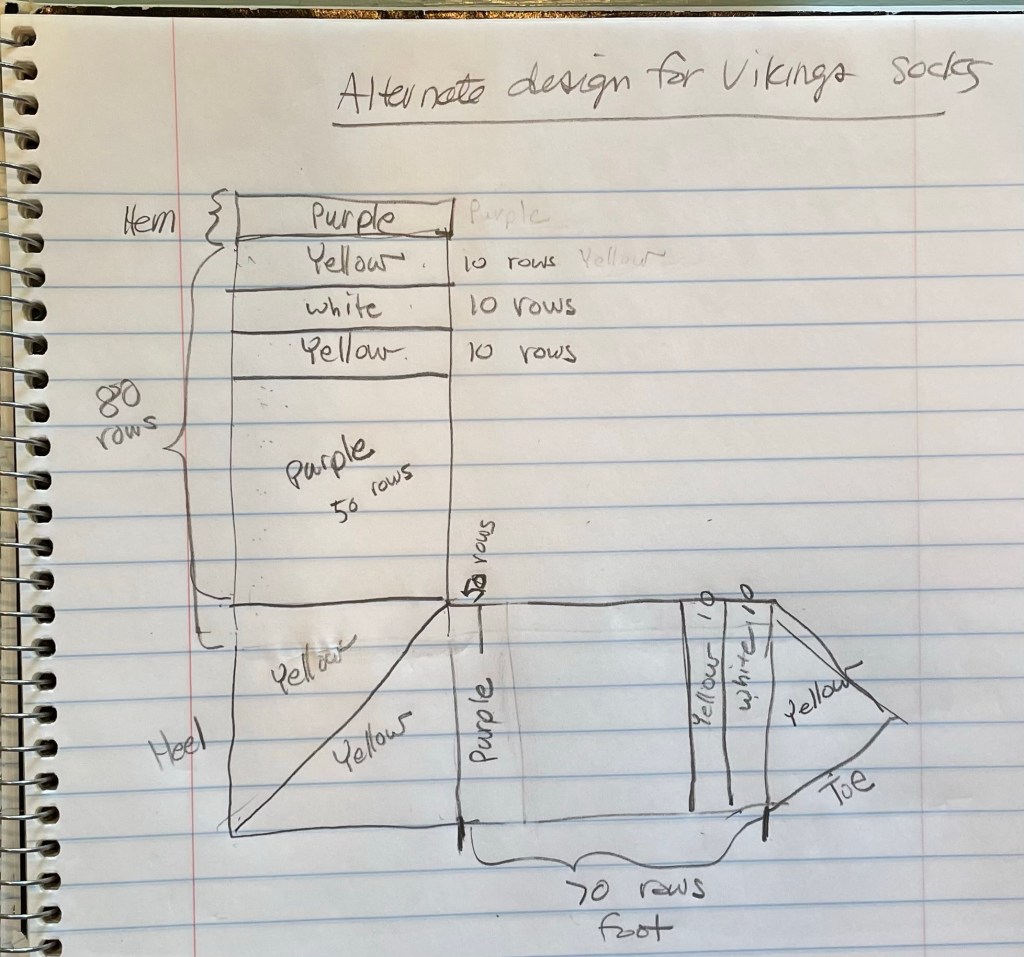 Alternate design for Vikings socks
Hem Purple Purple
Yellow 10 rows Yellow
white 10 rows
Yellow 10 rows
80 rows
Purple
50 rows
50 rows
Yellow
Yellow
Heel
Purple
Yellow 10
white 10
Yellow
Toe
70 rows
foot